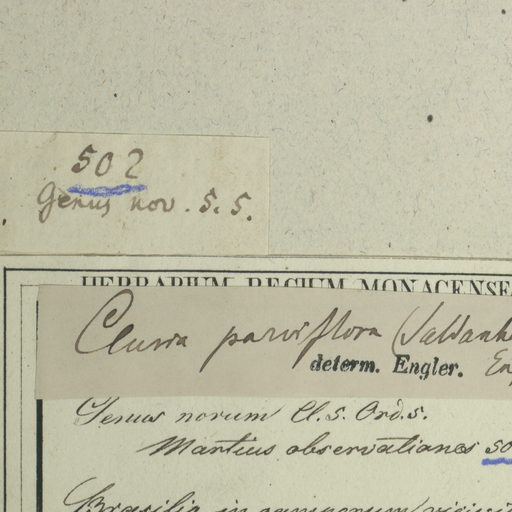 502
Genus nov. S. S.
HERBARIUM REGIUM MONACENSE
Clusia parviflora (Saldanh
determ. Engler. En
Genus novum Cl. S. Ord. S.
Martius observationes 50
Brasilia in